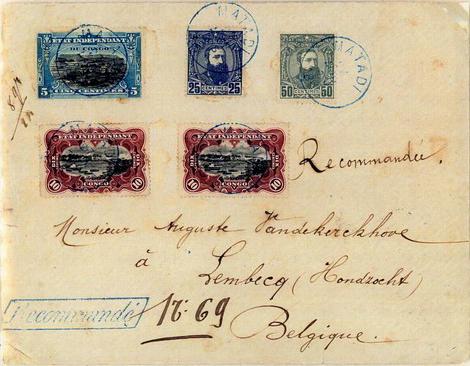 MATADI
MATADI
ETAT INDEPENDANT
DU CONGO
5 CINQ CENTIMES 5
25 CENTIMES 25
50 CENTIMES 50
ETAT INDEPENDANT
DU CONGO
DIX
10 10
ETAT INDEPENDANT
DU CONGO
DIX
10 10
Recommandée.
Monsieur Auguste Vandekerckhove
à
Lembecq (Hondzocht)
Recommandé
N: 69
Belgique.